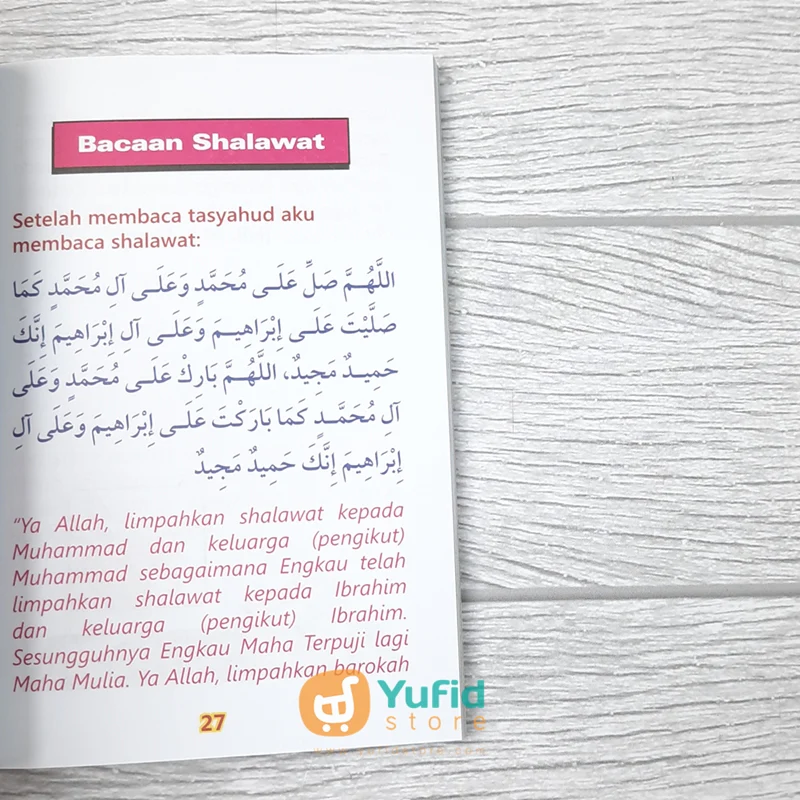 Bacaan Shalawat
Setelah membaca tasyahud aku
membaca shalawat:
اللَّهُمَّ صَلِّ عَلَى مُحَمَّدٍ وَعَلَى آلِ مُحَمَّدٍ كَمَا
صَلَّيْتَ عَلَى إِبْرَاهِيمَ وَعَلَى آلِ إِبْرَاهِيمَ إِنَّكَ
حَمِيدٌ مَجِيدٌ، اللَّهُمَّ بَارِكْ عَلَى مُحَمَّدٍ وَعَلَى
آلِ مُحَمَّدٍ كَمَا بَارَكْتَ عَلَى إِبْرَاهِيمَ وَعَلَى آلِ
إِبْرَاهِيمَ إِنَّكَ حَمِيدٌ مَجِيدٌ
“Ya Allah, limpahkan shalawat kepada
Muhammad dan keluarga (pengikut)
Muhammad sebagaimana Engkau telah
limpahkan shalawat kepada Ibrahim
dan keluarga (pengikut) Ibrahim.
Sesungguhnya Engkau Maha Terpuji lagi
Maha Mulia. Ya Allah, limpahkan barokah
27
Yufid
store